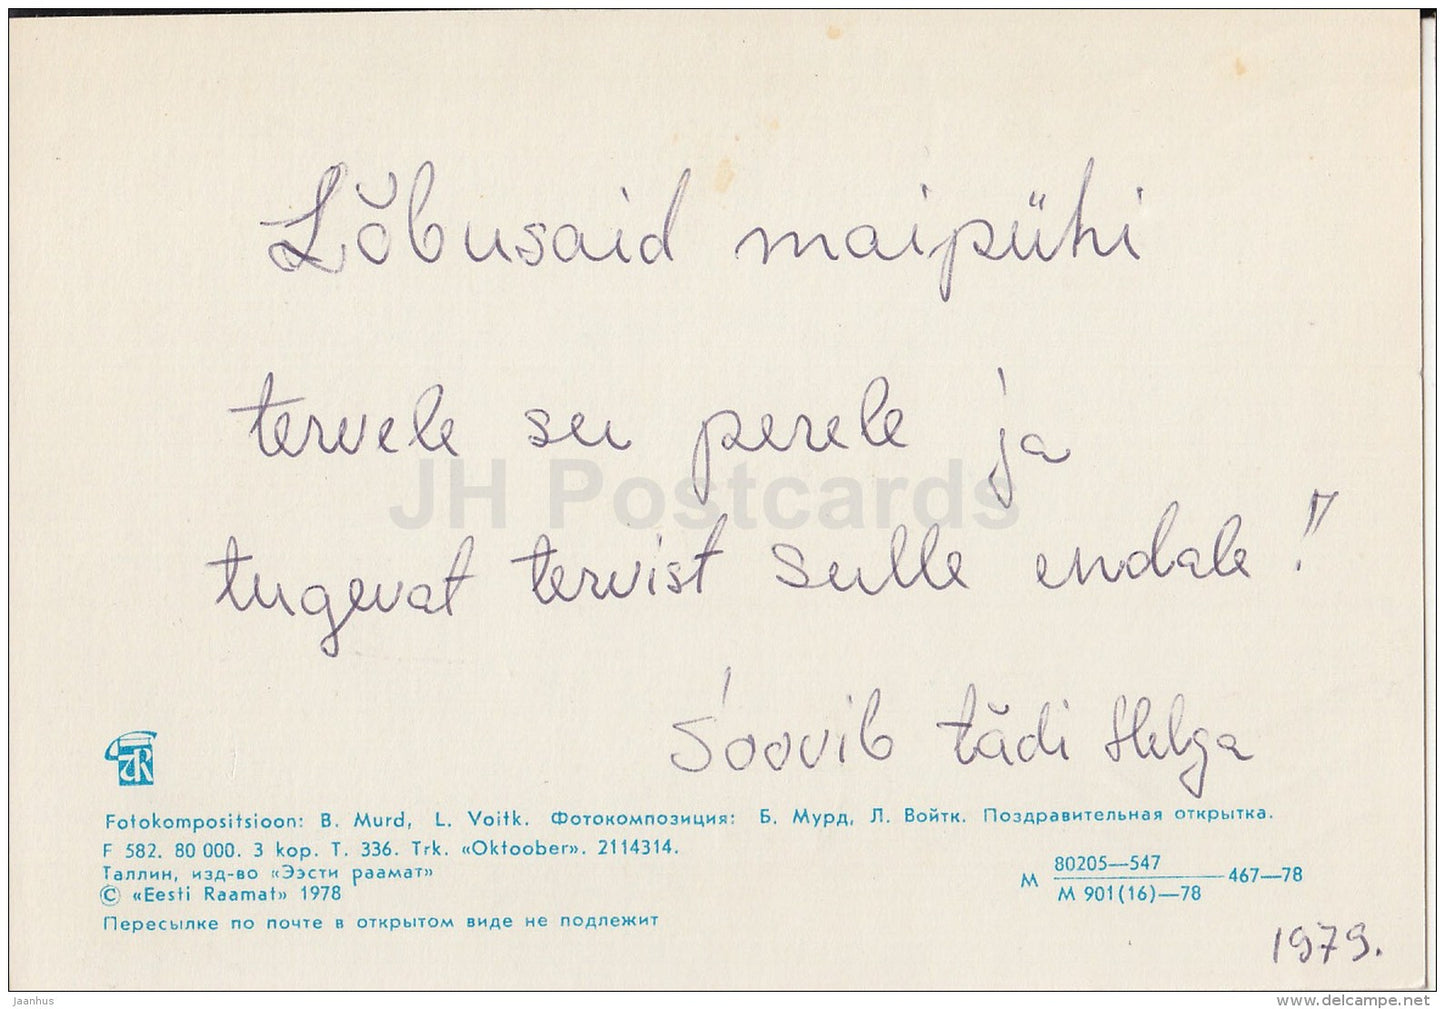 Lõbusaid maipühi
tervele su perele ja
JH Postcards
tugevat tervist sulle endale!"
Soovib tädi Helga
Fotokompositsioon: B. Murd, L. Voitk. Фотокомпозиция: Б. Мурд, Л. Войтк. Поздравительная открытка.
F 582. 80 000. 3 kop. T. 336. Trk. «Oktoober». 2114314.
Таллин, изд-во «Ээсти раамат»
© «Eesti Raamat» 1978
Пересылке по почте в открытом виде не подлежит
М 80205—547
М 901(16)—78
467—78
1979.
jaanhus
www.delcampe.net